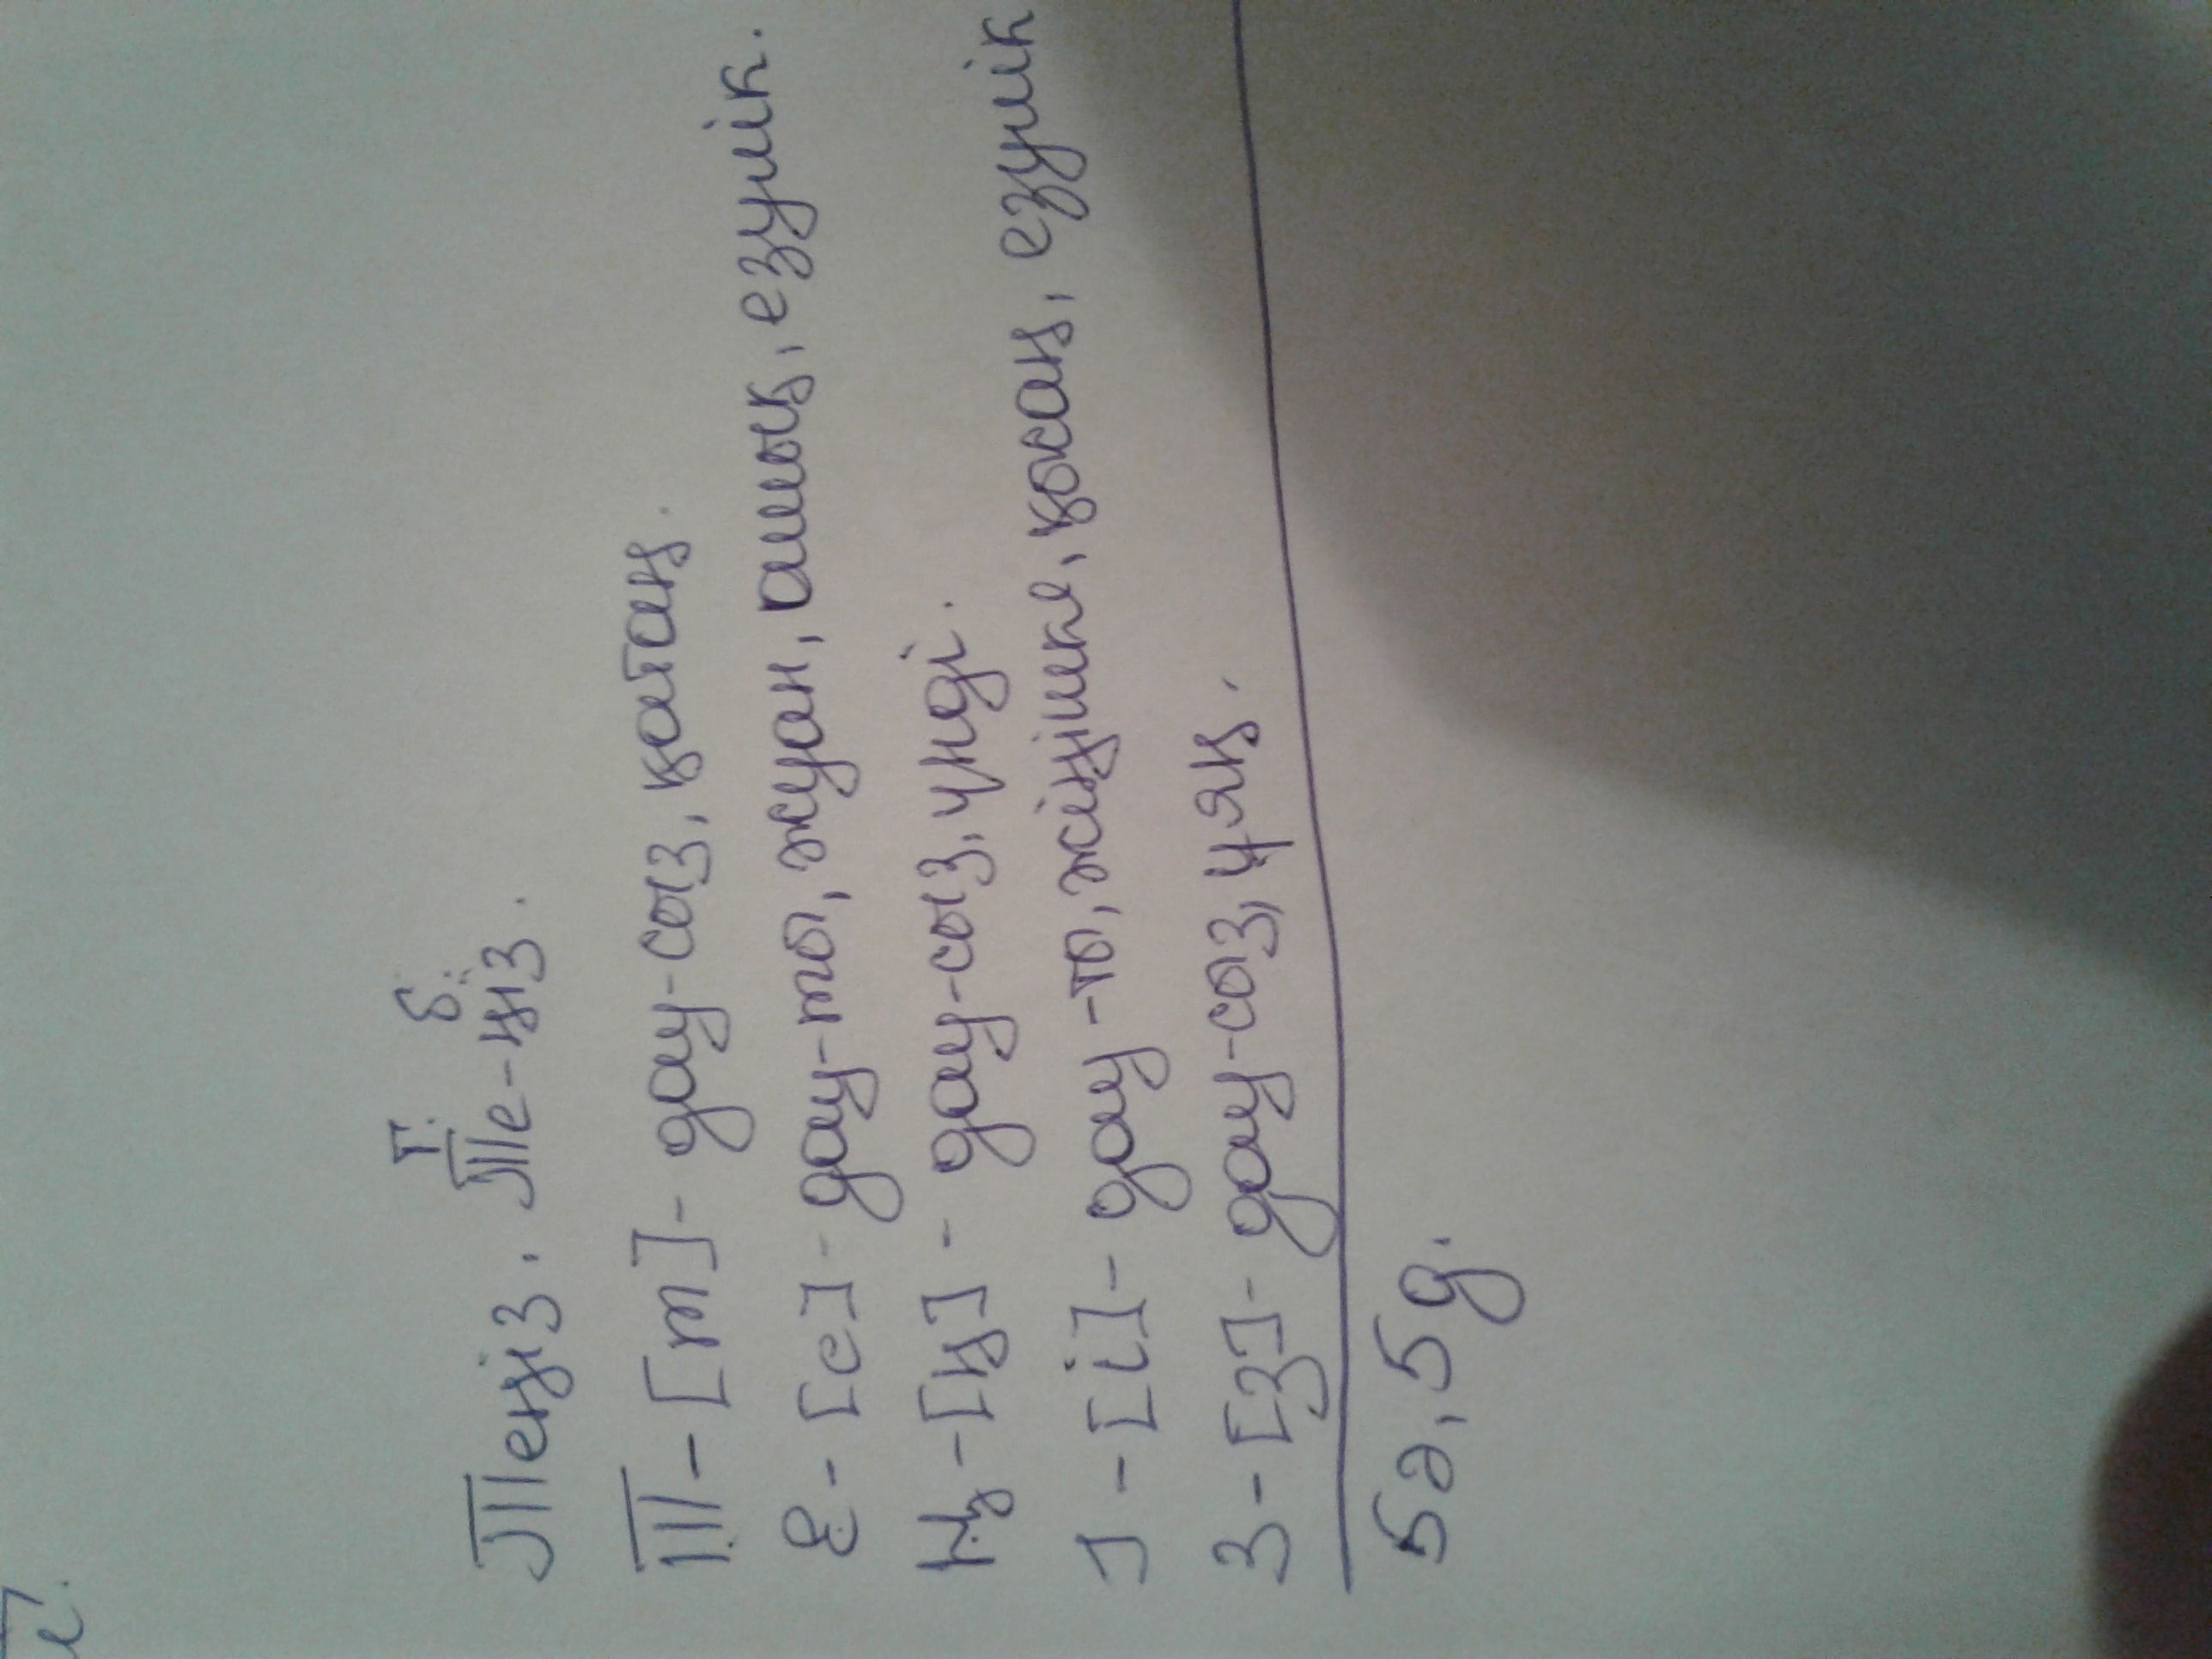 Т. б.
Теңіз. Те-ңіз.
Т-[т]- дау-сыз, қатаң.
Е-[е]- дау-ты, жуан, ашық, езулік.
Ң-[ң]- дау-сыз, үнді.
І-[і]- дау-ты, жіңішке, қысаң, езулік
З-[з]- дау-сыз, ұяң.
5ә, 5д.